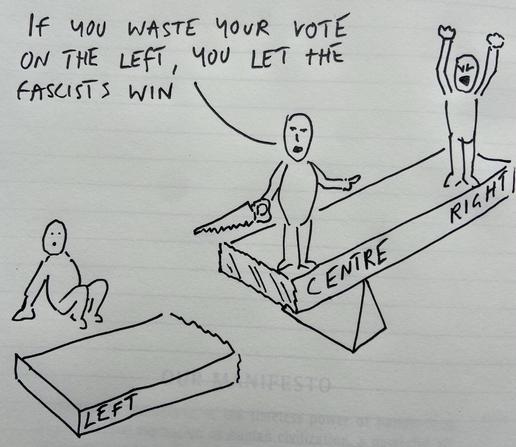 IF YOU WASTE YOUR VOTE
ON THE LEFT, YOU LET THE
FASCISTS WIN
CENTRE
RIGHT
LEFT
OUR MANIFESTO